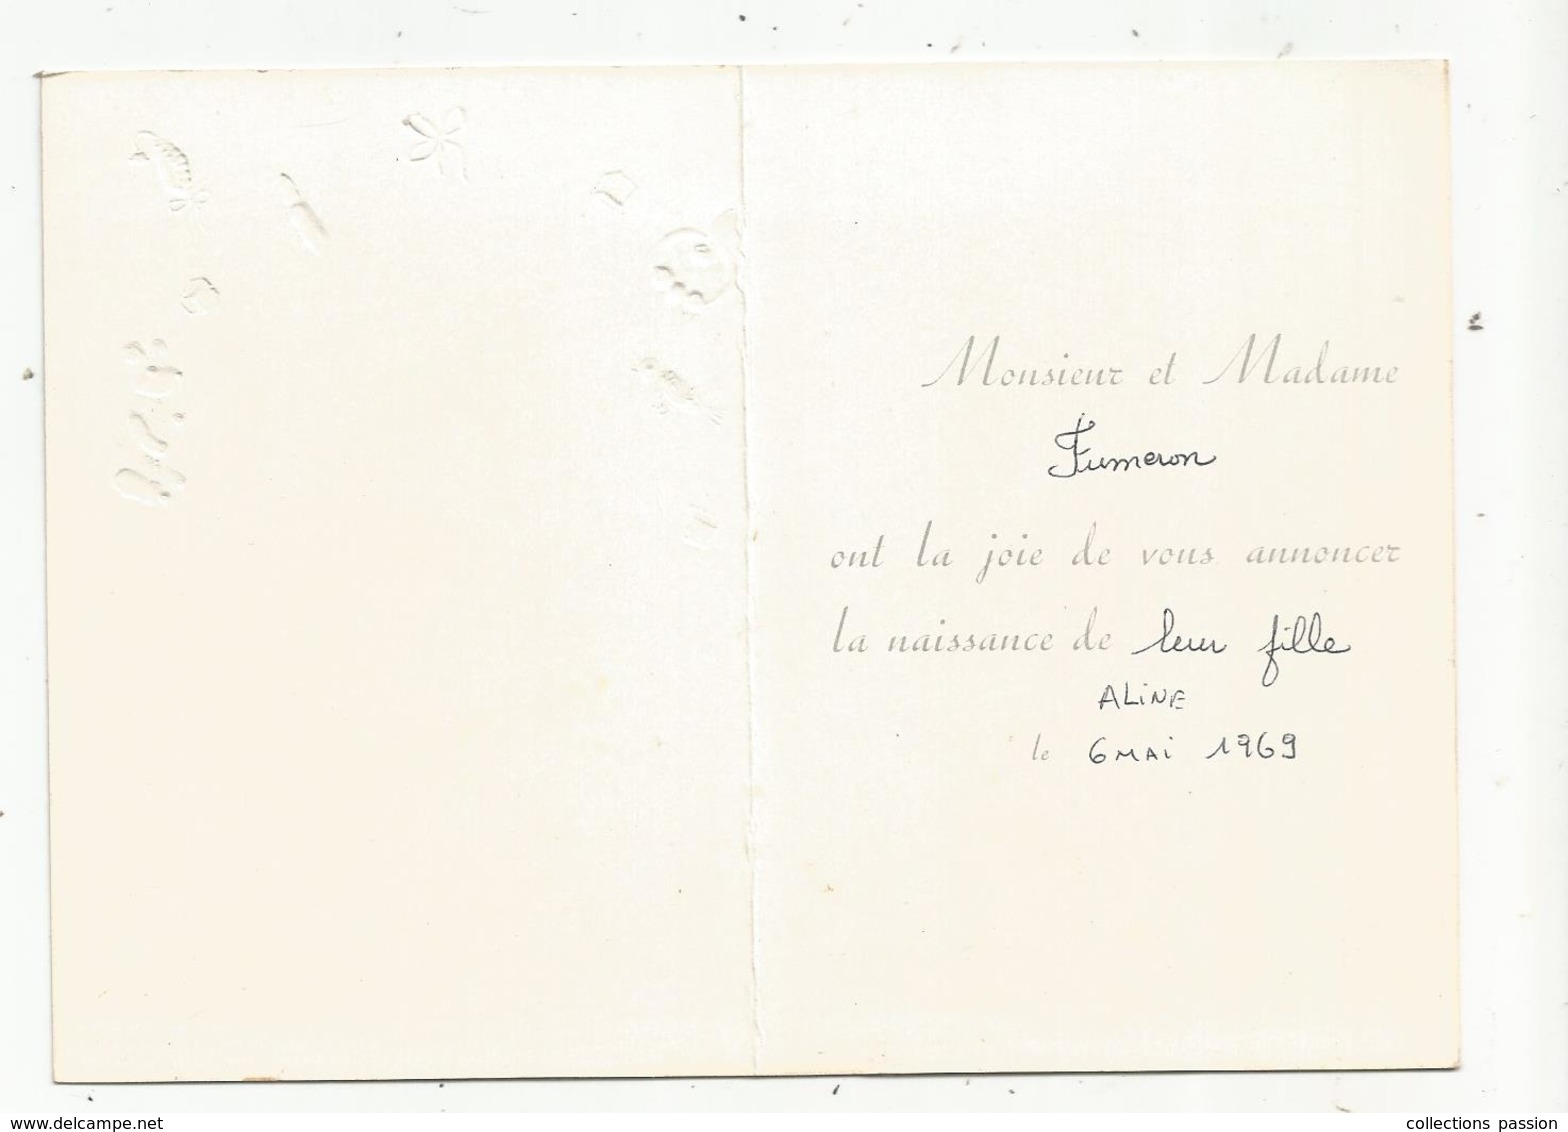 Monsieur et Madame
Fumeron
ont la joie de vous annoncer
la naissance de leur fille
ALiNE
le 6 MAi 1969
www.delcampe.net
collections passion